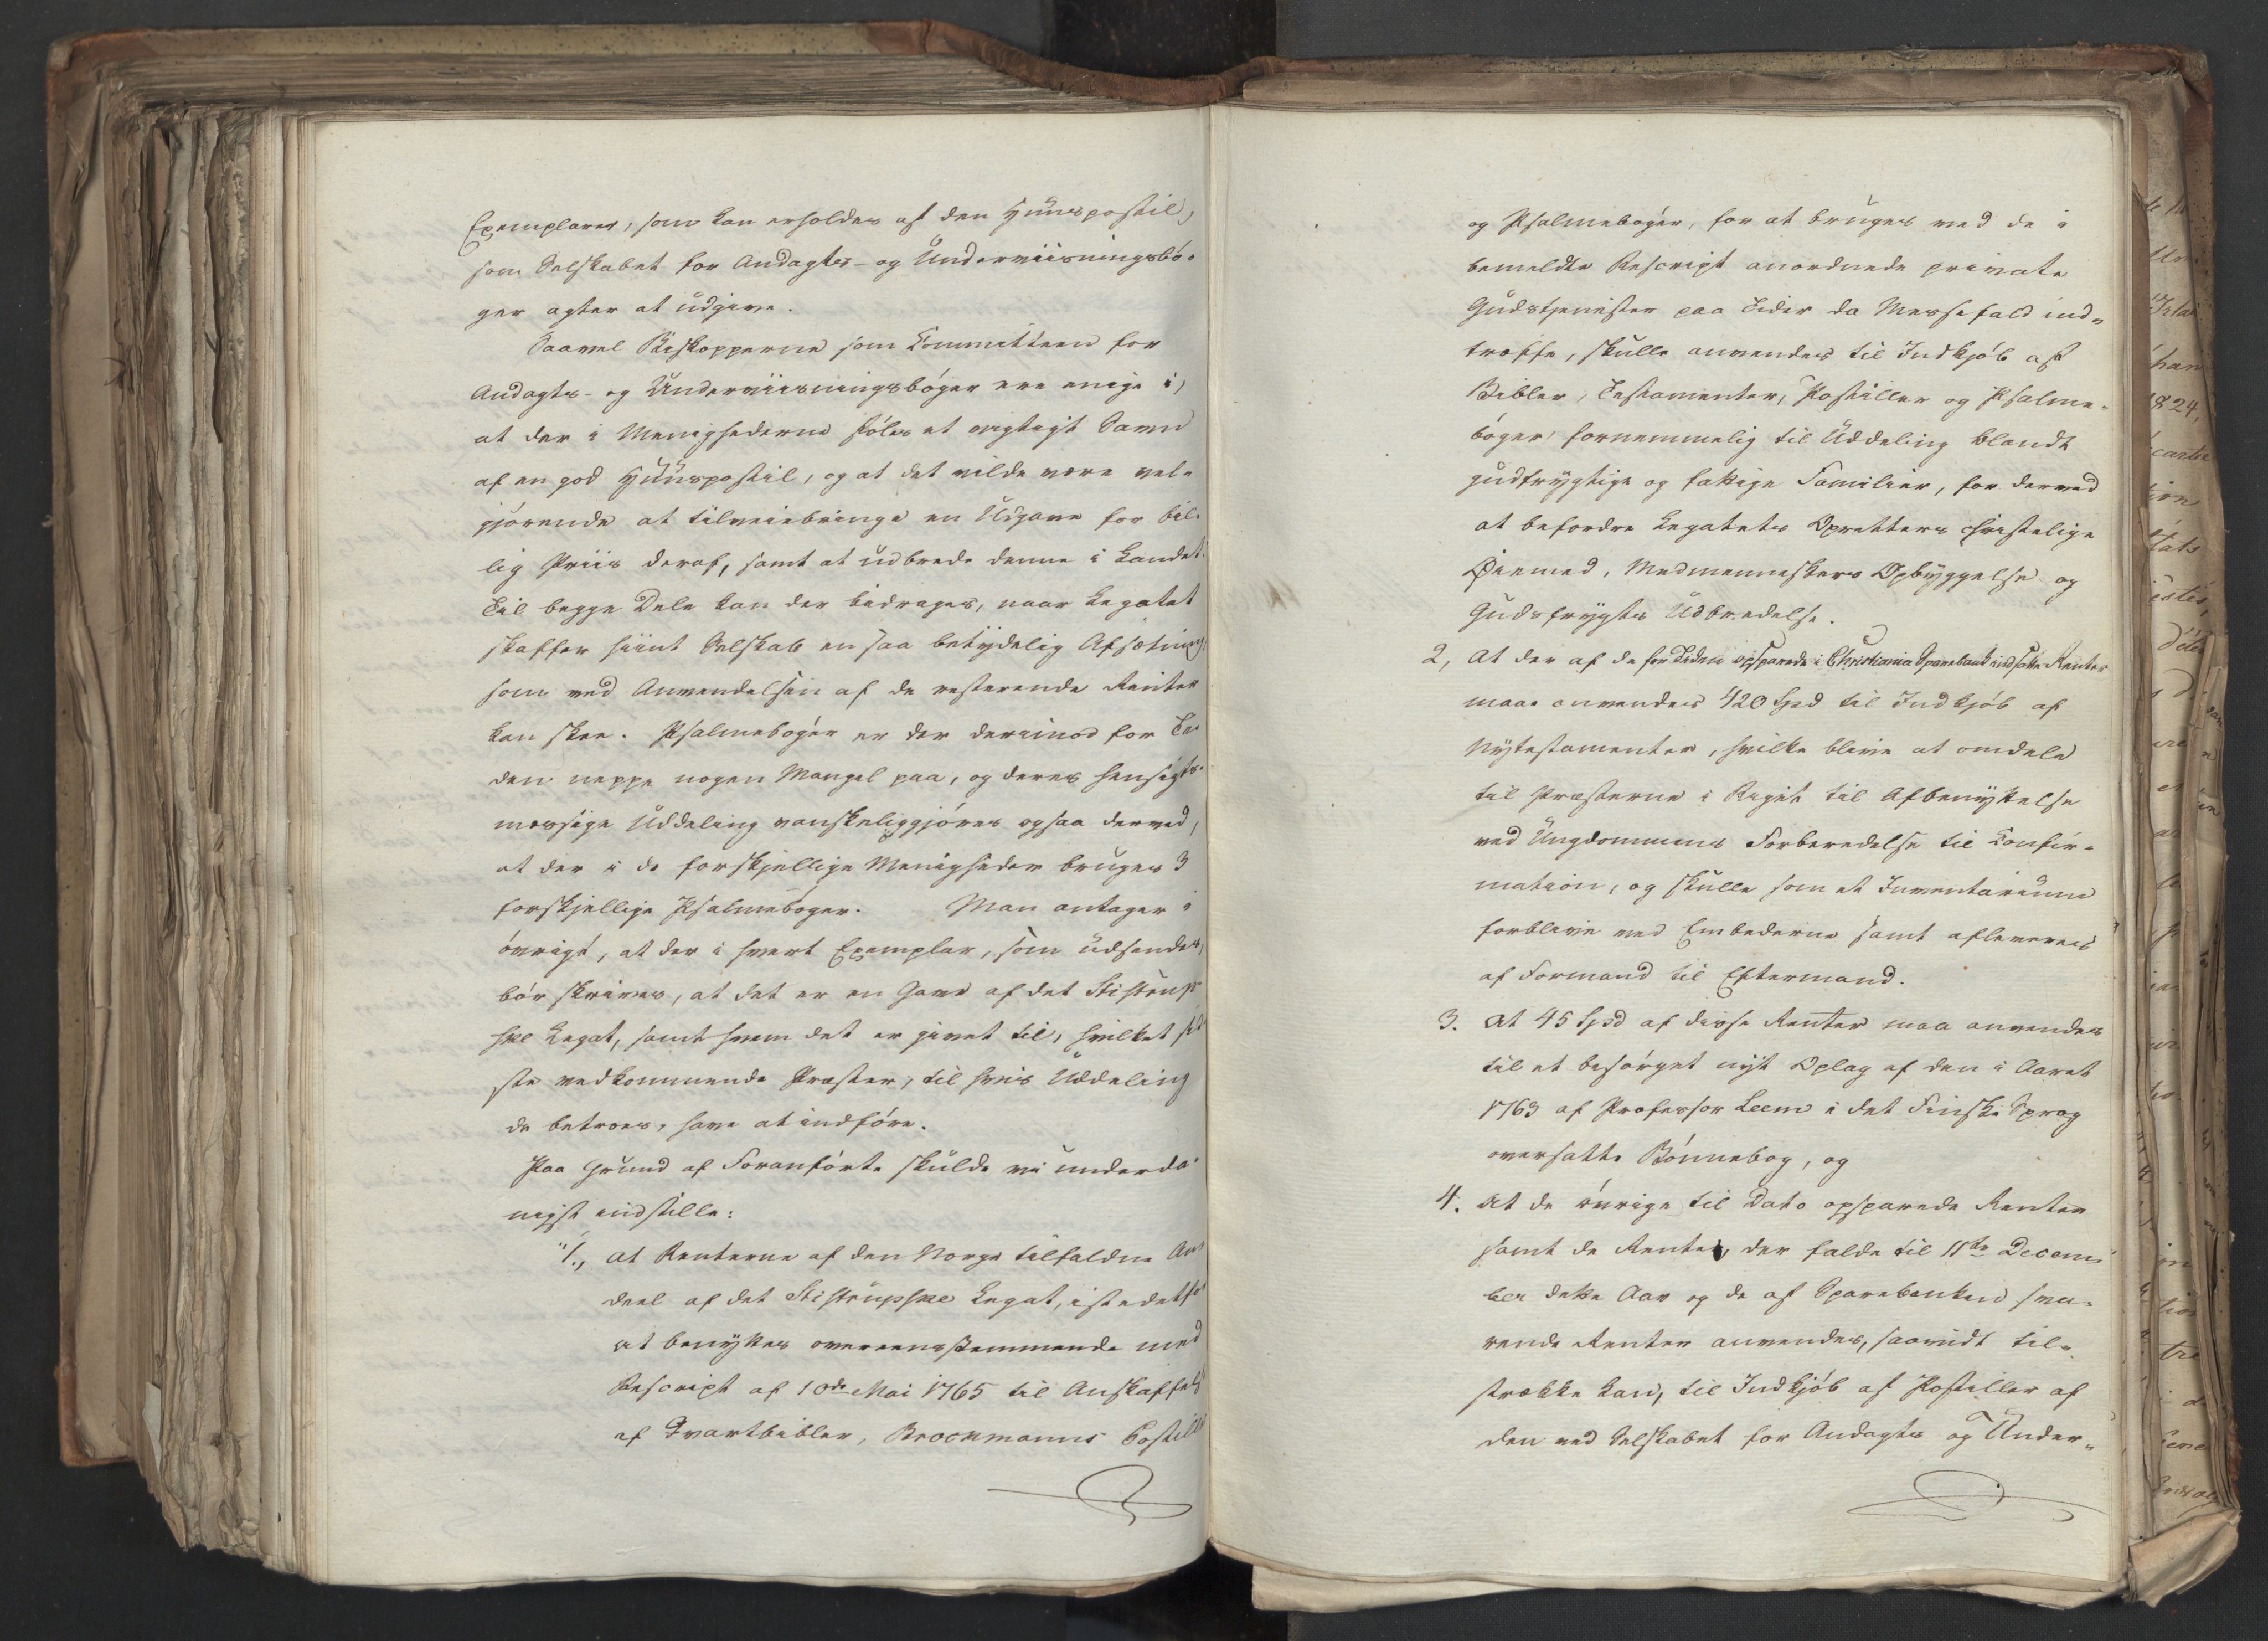 Exemplarer, som kan erholdes af den Huuspostil,
som Selskabet for Andagts- og Underviisningsbø-
ger agter at udgive.
Saavel Biskopperne som Committeen for
Andagts- og Underviisningsbøger ere enige i,
at der i Menighederne føles et vigtigt Savn
af en god Huuspostil, og at det vilde være vel-
gjørende at tilveiebringe en Udgave for bil-
lig Priis deraf, samt at udbrede denne i Landet.
Til begge Dele kan der bidrages, naar Legatet
skaffer hiint Selskab en saa betydelig Afsætning,
som ved Anvendelsen af de resterende Renter
kan skee. Psalmebøger er der derimod for Ti-
den neppe nogen Mangel paa, og deres hensigts-
mæssige Uddeling vanskeliggjøres ogsaa derved,
at der i de forskjellige Menigheder bruges 3
forskjellige Psalmebøger. Man antager i
øvrigt, at der i hvert Exemplar, som udsendes,
bør skrives, at det er en Gave af det Stistrup-
ske Legat, samt hvem det er givet til, hvilket sid-
ste vedkommende Præster, til hvis Uddeling
de betroes, have at indføre.
Paa Grund af Foranførte skulde vi underda-
nigst indstille:
"1., at Renterne af den Norge tilfaldne An-
deel af det Stistrupske Legat, istedetfor
at benyttes overeensstemmende med
Rescript af 10de Mai 1765 til Anskaffelse
af Qvartbibler, Brockmanns Postiller
og Psalmebøger, for at bruges ved de i
bemeldte Rescript anordnede private
Gudstjenester paa Tider da Messefald ind-
træffe, skulle anvendes til Indkjøb af
Bibler, Testamenter, Postiller og Psalme-
bøger, fornemmelig til Uddeling blandt
gudfrygtige og fattige Familier, for derved
at befordre Legatets Opretters christelige
Øiemed, Medmenneskers Opbyggelse og
Gudsfrygts Udbredelse.
2, At der af de for Tiden opsparede i Christiania Sparebank indsatte Renter
maae anvendes 420 Spd til Indkjøb af
Nytestamenter, hvilke blive at omdele
til Præsterne i Riget til Afbenyttelse
ved Ungdommens Forberedelse til Confir-
mation, og skulle som et Inventarium
forblive ved Embederne samt afleveres
af Formand til Eftermand.
3. At 45 Spd af disse Renter maa anvendes
til et besørget nyt Oplag af den i Aaret
1763 af Professor Leem i det Finske Sprog
oversatte Bønnebog, og
4. At de øvrige til Dato opsparede Renter
samt de Renter, der falde til 11te Decem-
ber dette Aar og de af Sparebanken sva-
rende Renter anvendes, saavidt til-
strække kan, til Indkjøb af Postiller af
den ved Selskabet for Andagts og Under-